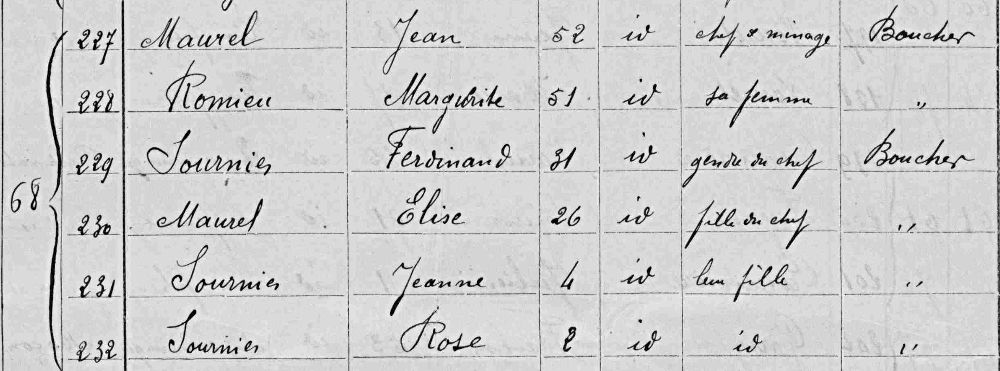 227 Maurel Jean 52 id chef de ménage Boucher
228 Romieu Marguerite 51 id sa femme "
229 Sournies Ferdinand 31 id gendre du chef Boucher
68
230 Maurel Elise 26 id fille du chef "
231 Sournies Jeanne 4 id leur fille "
232 Sournies Rose 2 id id "